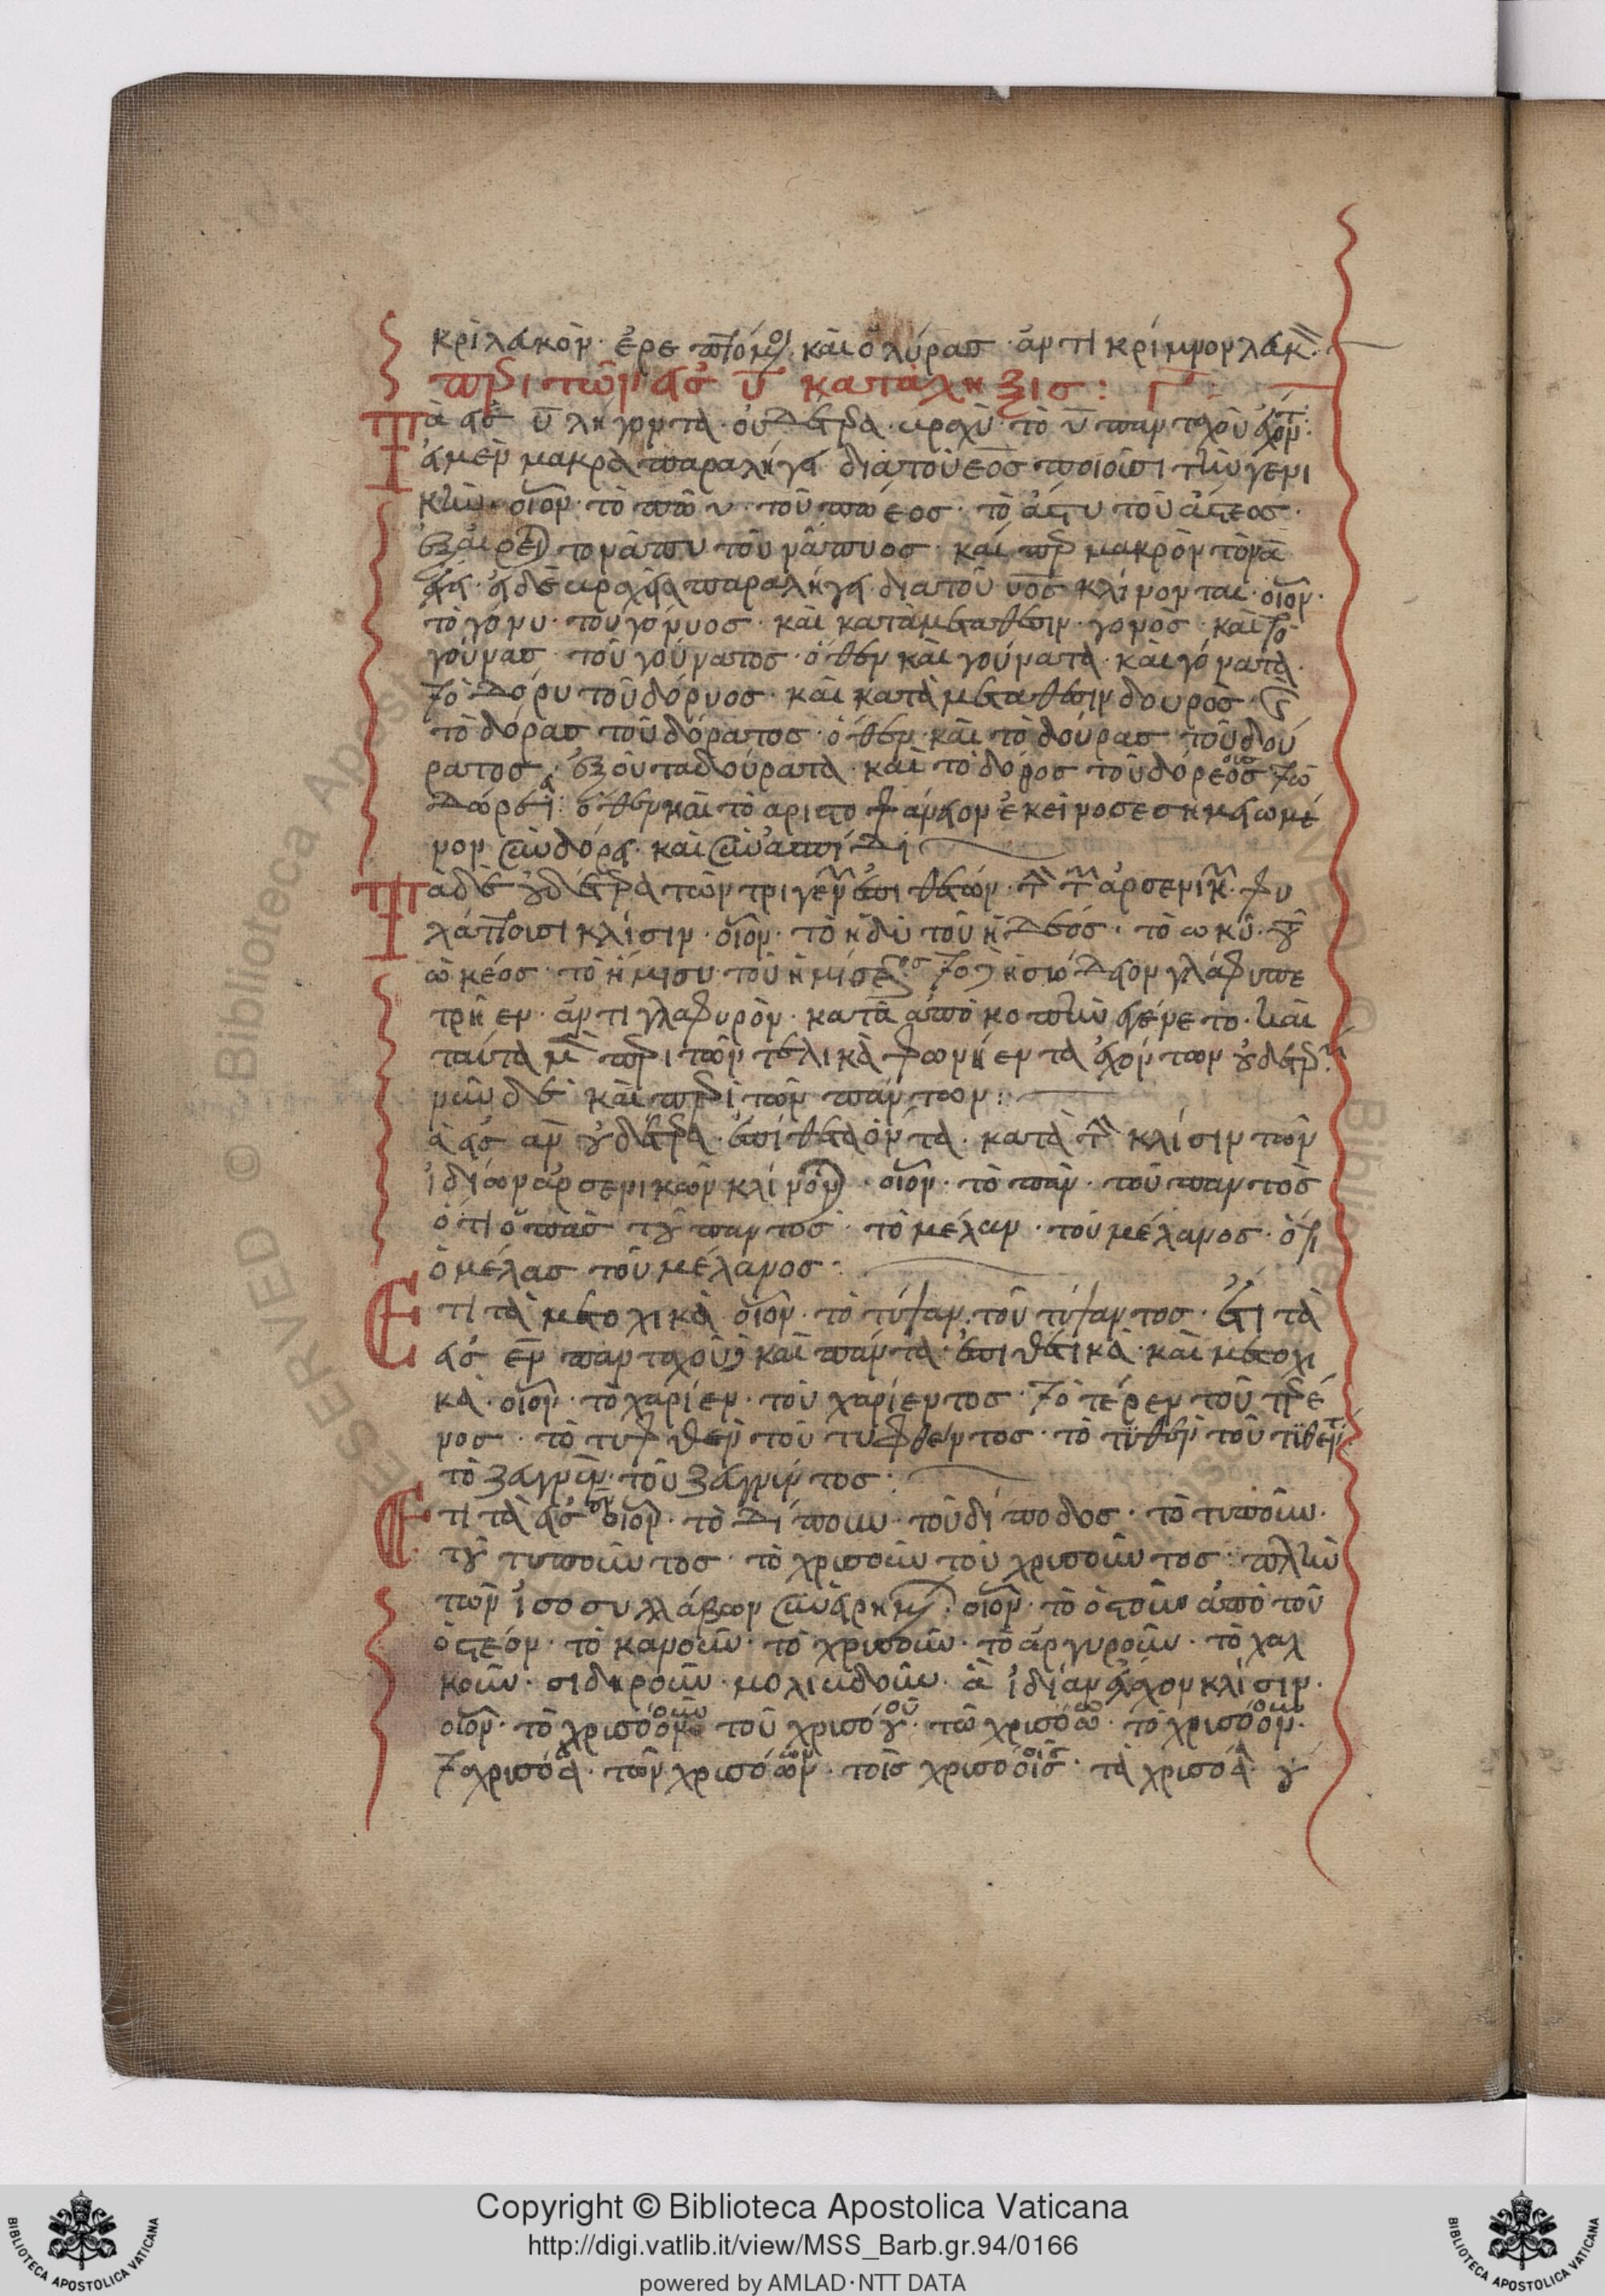 κρὶ λακὸν· ἔρε πτόμ καὶ ὀλύρας ἀντὶ κρίμνον λακ
περὶ τῶν εἰς ῡ κατάληξις: Γ
Τὰ εἰς ῡ λήγοντα οὐδέτερα βραχὺ τὸ ῡ πανταχοῦ ἔχον
ἃ μὲν μακρᾶ παραλήγει διὰ τοῦ εος ποιοῦσι τὴν γενι
κὴν· οἷον· τὸ πῶυ τοῦ πώεος· τὸ ἄστυ τοῦ ἄστεος·
ἐξαιρε το νάπυ τοῦ νάπυος· καὶ μακρὸν τὸ νᾱ
ἃ δὲ βραχεία παραλήγει δια τοῦ ῡος κλίνονται· οἷον·
τὸ γόνυ· του γόνυος· καὶ κατὰ μετάθεσιν· γονὸς· καὶ τὸ
γούνας τοῦ γούνατος· ὅθεν καὶ γούνατα· καὶ γόνατα·
τὸ δόρυ τοῦ δόρυος· καὶ κατὰ μετάθεσιν δουρὸς·
τὸ δόρας τοῦ δόρατος· ὅθεν καὶ τὸ δούρας τοῦ δού
ρατος· ἐξ οὗ τα δούρατα· καὶ τὸ δόρος τοῦ δόρεος τῶ
δώρει: ὅθεν καὶ τὸ αριστοφάνειον ἐκεῖνο σεσημειωμέ
νον σὺν δόρει καὶ σὺν ἀσπίδι
Τὰ δὲ οὐδέτερα τῶν τριγεν ἐπιθέτων· τὴν τῶν ἀρσενικ φυ
λάττουσι κλίσιν· οἷον· τὸ ἡδὺ τοῦ ἡδέος· τὸ ωκὺ· τοῦ
ὠκέος· τὸ ἥμισυ· τοῦ ἡμίσεος το ἡσιόδειον γλάφυ πε
τρῆεν· ἀντὶ γλαφυρὸν· κατὰ ἀποκοπὴν ἐγένετο· καὶ
ταύτα μὲν περὶ τῶν τελικὰ φωνήεντα ἐχόντων οὐδετέρων
νῦν δὲ καὶ περὶ τῶν πάντων:
ἃ εἰς αν οὐδέτερα ἐπίθετα ὄντα κατὰ τὴν κλίσιν τῶν
ἰδίων ἀρσενικῶν κλίνον· οἷον· τὸ πᾶν· τοῦ παντὸς
ὅτι ὁ πᾶς τοῦ παντος· τὸ μέλαν· τοῦ μέλανος· ὅτι
ὁ μέλας τοῦ μέλανος·
Ετι τὰ μετοχικὰ οἷον· τὸ τύψαν· τοῦ τύψαντος· ἔτι τὰ
εἰς εν πανταχοῦ καὶ πάντα ἐπιθετικὰ· καὶ μετοχι
κὰ· οἷον· τὸ χαρίεν· τοῦ χαρίεντος· τὸ τέρεν τοῦ τερέ
νος· τὸ τυφθὲν τοῦ τυφθέντος· τὸ τιθὲν τοῦ τιθέντ
τὸ ζαγρὶν· τοῦ ζαγρίντος·
Ετι τὰ εἰς ουν οἷον· τὸ δίπουν· τοῦ δίποδος· τὸ τυποῦν·
τοῦ τυποῦντος· τὸ χρυσοῦν τοῦ χρυσοῦντος· πλὴν
τῶν ἰσοσυλλάβων συνηρημ οἷον· τὸ ὀστοῦν ἀπὸ τοῦ
ὀστέον· τὸ κανοῦν· τὸ χρυσοῦν· τὸ ἀργυροῦν· τὸ χαλ
κοῦν· σιδηροῦν· μολιβδοῦν· ἃ ἰδίαν ἔχον κλίσιν·
οἷον· τὸ χρισόον οῦν τοῦ χρισόου οῦ· τῶ χρισόω ῶ· τὸ χρισόον οῦν·
τα χρισόα ᾶ· τῶν χρισόων ῶν· τοῖς χρισόοις οῖς· τὰ χρισόα ᾶ· ου
Copyright © Biblioteca Apostolica Vaticana
http://digi.vatlib.it/view/MSS_Barb.gr.94/0166
powered by AMLAD·NTT DATA
BIBLIOTECA APOSTOLICA VATICANA
BIBLIOTECA APOSTOLICA VATICANA